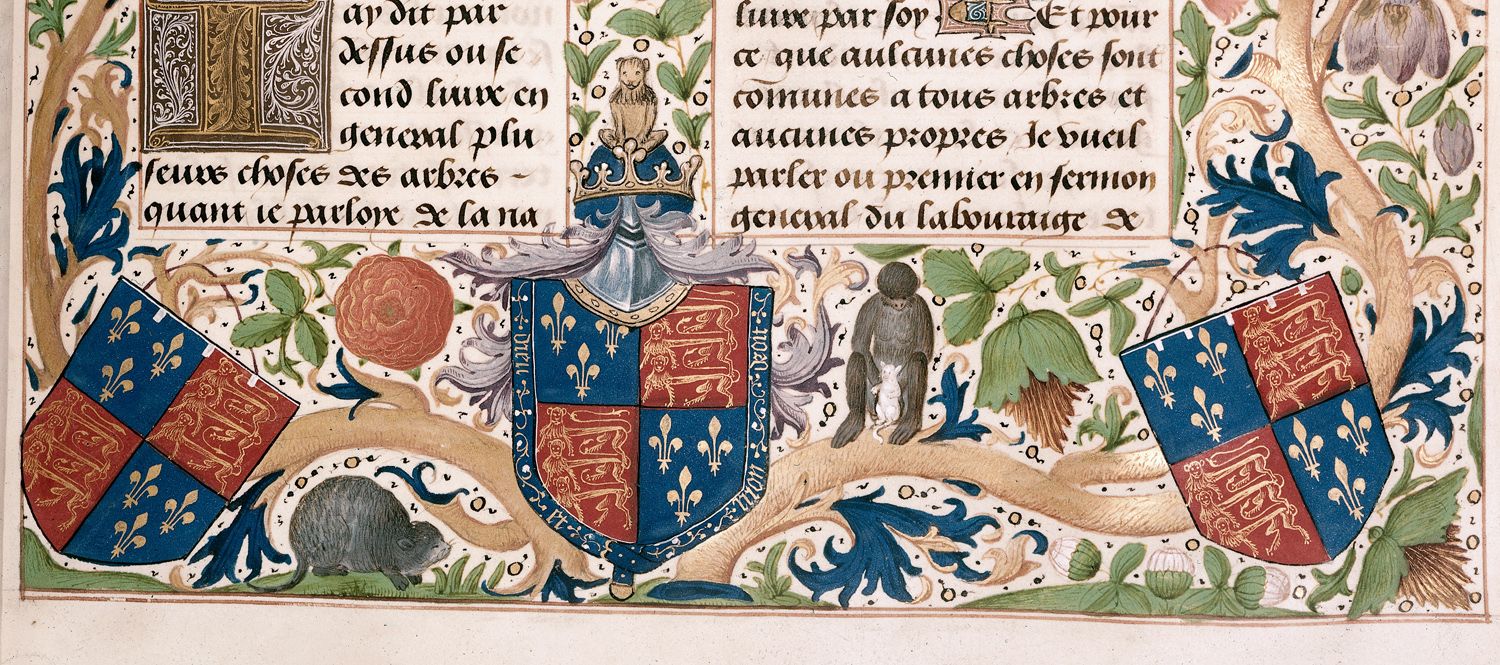 ay dit par
dessus ou se
cond liure en
general plu
seurs choses des arbres -
quant ie parloye de la na
liure par soy Et pour
ce que aulcunes choses sont
comunes a tous arbres et
aucunes propres Je vueil
parler ou premier en sermon
general du labouraige de
dieu et mon droit